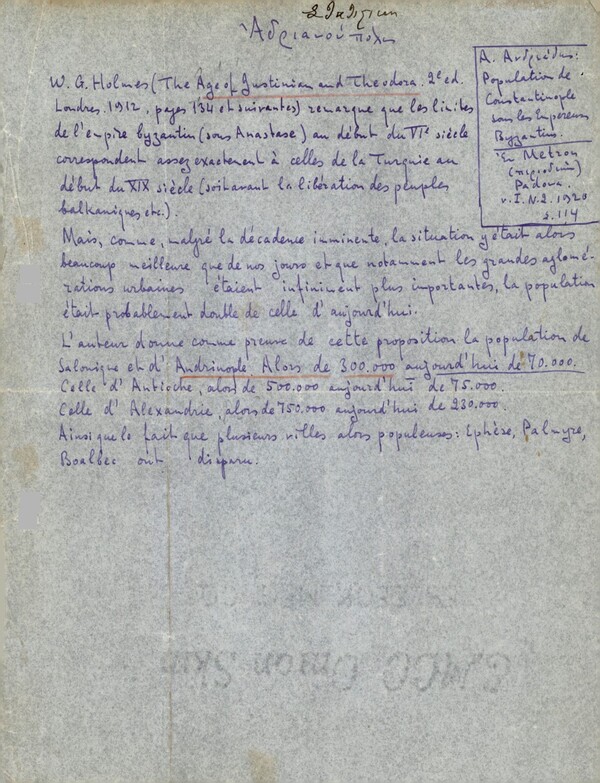 Ἀδριανούπολις
A. Ανδρέάδης:
Population de
Constantinople
sous les Empereurs
Byzantins.
En Metron
Padova.
v. I. N. 2. 1920
s. 114
W. G. Holmes (The Age of Justinian and Theodora. 2e ed.
Londres. 1912, pages 134 et suivantes) remarque que les limites
de l'empire byzantin (sous Anastase) au début du VIe siècle
correspondent assez exactement à celles de la Turquie au
début du XIX siècle (soit avant la libération des peuples
balkaniques etc.).
Mais, comme, malgré la décadence imminente, la situation y était alors
beaucoup meilleure que de nos jours et que notamment les grandes aglomé-
rations urbaines étaient infiniment plus importantes, la population
était probablement double de celle d'aujourd'hui.
L'auteur donne comme preuve de cette proposition la population de
Salonique et d'Andrinople. Alors de 300.000 aujourd'hui de 70.000.
Celle d'Antioche, alors de 500.000 aujourd'hui de 75.000.
Celle d'Alexandrie, alors de 750.000 aujourd'hui de 230.000.
Ainsi que le fait que plusieurs villes alors populeuses: Ephèse, Palmyre,
Boalbec ont disparu.